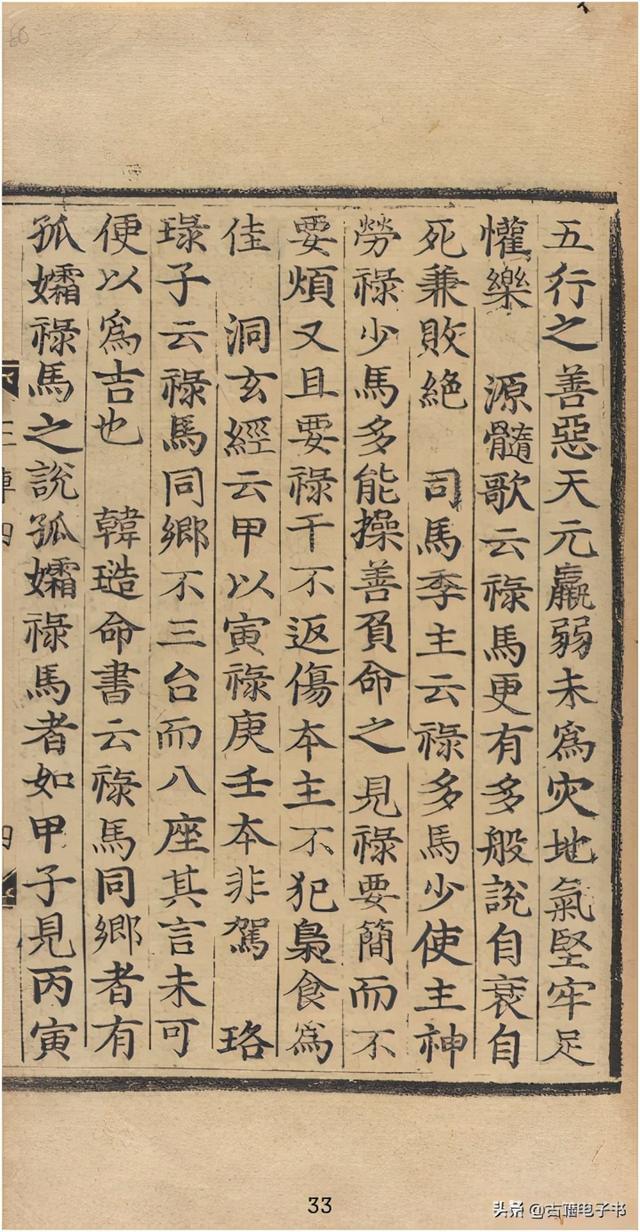 五行之善惡天元羸弱未爲灾地氣堅牢足
懽樂 源髓歌云祿馬更有多般說自衰自
死兼敗絶 司馬季主云祿多馬少使主神
勞祿少馬多能操善負命之見祿要簡而不
要煩又且要祿干不返傷本主不犯梟食爲
佳 洞玄經云甲以寅祿庚壬本非駕 珞
琭子云祿馬同鄉不三台而八座其言未可
便以爲吉也 韓命書云祿馬同鄉者有
孤孀祿馬之說孤孀祿馬者如甲子見丙寅
33
头条 @古籍电子书